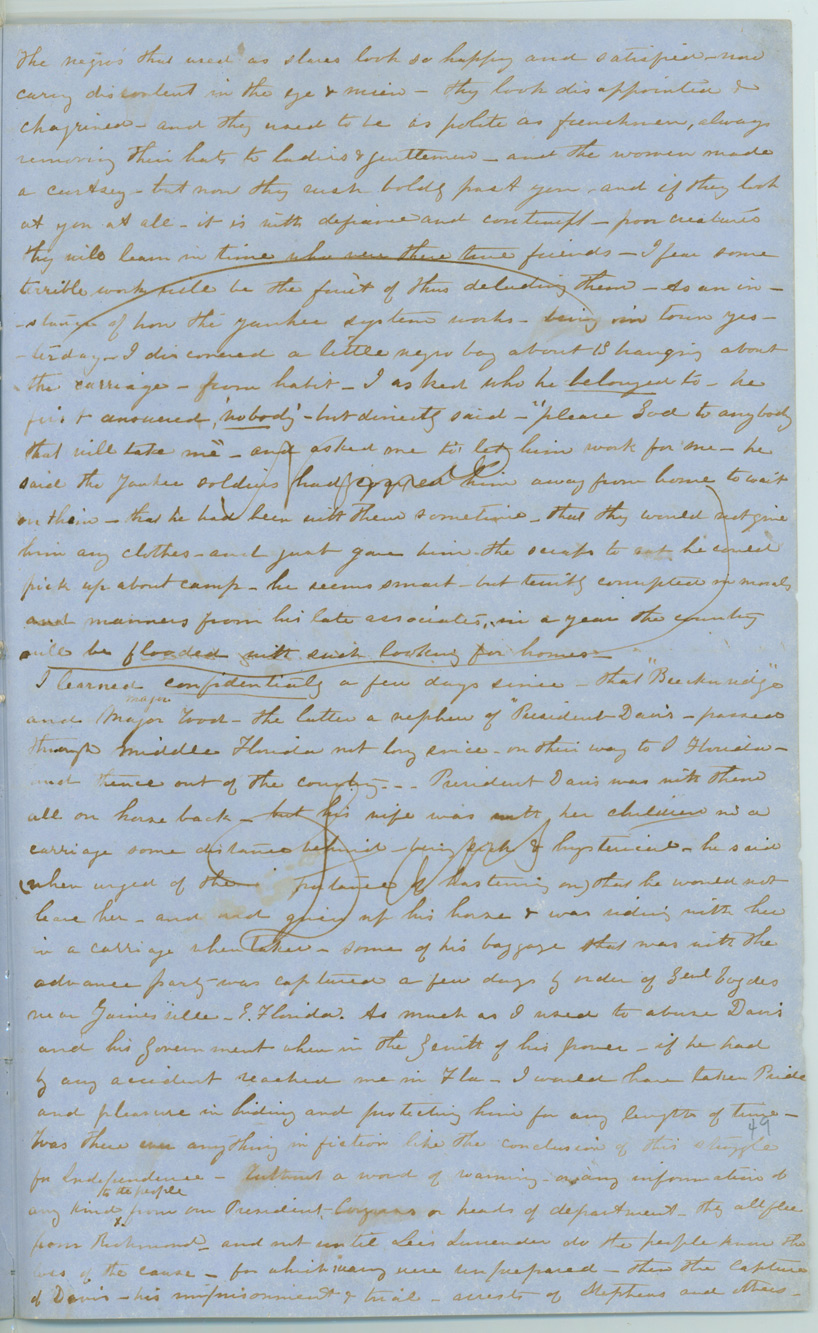 The negros that used as slaves look so happy and satisfied - now
carry discontent in the eye & mien - they look disappointed &
chagrined - and they used to be as polite as frenchmen, always
removing their hats to ladies & gentlemen - and the women made
a curtsey - but now they rush boldly past you - and if they look
at you at all - it is with defiance and contempt - poor creatures
they will learn in time who were there true friends - I fear some
terrible work will be the fruit of thus deluding them - As an in-
-stance of how the yankee system works - being in town yes-
-terday - I discovered a little negro boy about 13 hanging about
the carriage - from habit - I asked who he belonged to - he
first answered, 'nobody' - but directly said - "please God to anybody
that will take me" - and asked me to let him work for me - he
said the Yankee soldiers had him away from home to wait
on them - that he had been with them sometime - that they would not give
him any clothes - and just gave him the scraps to eat he could
pick up about camp - he seems smart - but terribly corrupted in morals
and manners from his late associates, in a year the country
will be flooded with such looking for homes -
I learned confidentially a few days since - that "Breckinridge"
major
and Major Wood - the latter a nephew of "President Davis - passed
through middle Florida not long since - on their way to S Florida -
and thence out of the country - - - President Davis was with them
all on horse back - but his wife was with her children in a
carriage some distance behind - being sick & hysterical - he said
(when urged of the of hastening on) that he would not
leave her - and had given up his horse & was riding with her
in a carriage when taken - some of his baggage that was with the
advance party was captured a few days by order of Genl Vogdes
near Gainesville - E. Florida. As much as I used to abuse Davis
and his Government when in the Zenith of his power - if he had
by any accident reached me in Fla - I would have taken Pride
and pleasure in hiding and protecting him for any length of time -
49
Was there ever anything in fiction like the conclusion of this struggle
for Independence - Without a word of warning or any information of
to the people
any kind x from our President - Congress or heads of department - they all flee
from Richmond - and not until Lee's Surrender do the people know the
loss of the cause - for which many were unprepared - then the capture
of Davis - his imprisonment & trial - arrests of Stephens and others -